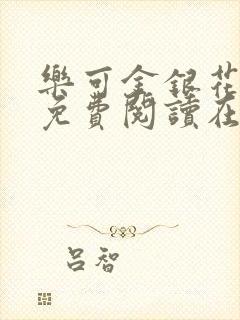 樂可金銀花
免費閱讀在
呂智